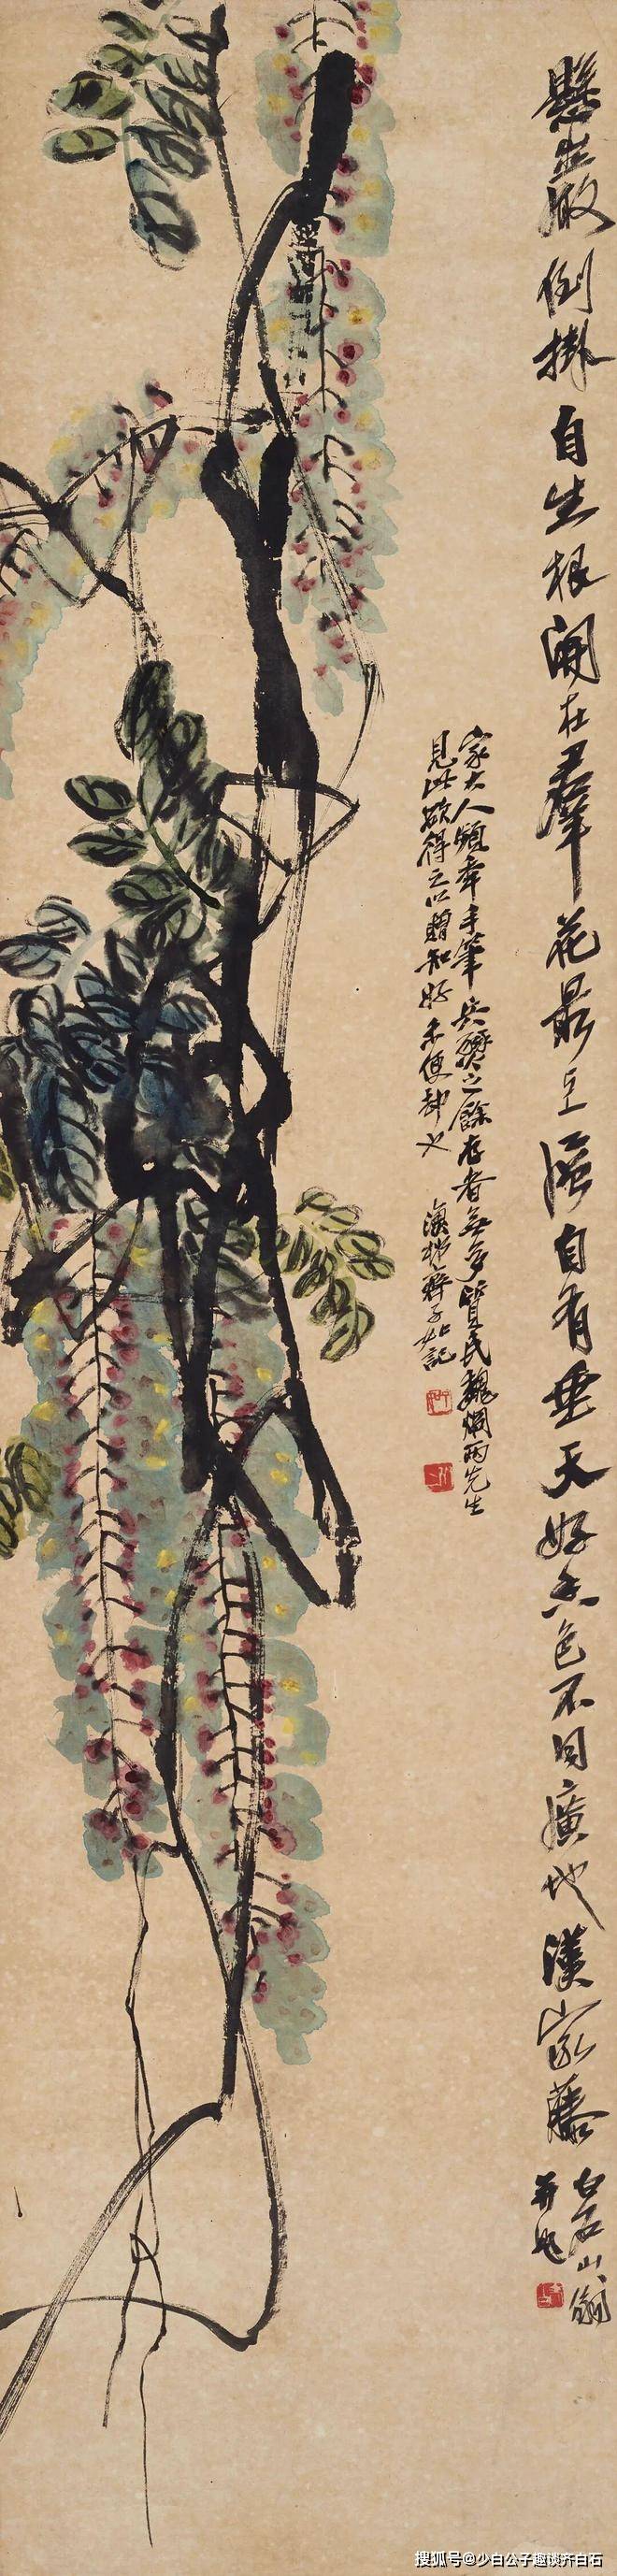 懸巖倒掛自生根開在羣花最上層自有垂天好香色不同地漢家藤
白石山翁
家大人手筆兵燹之餘存者無多賢民魏炯兩先生
見此欲得之以贈知好未便卻也 齊子如記
搜狐号@少白公子趣谈齐白石